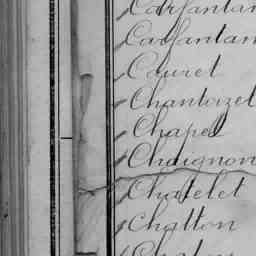 Carfantan
Carfantan
Couret
Chantoizel
Chapel
Chaignon
Chatelet
Chatton